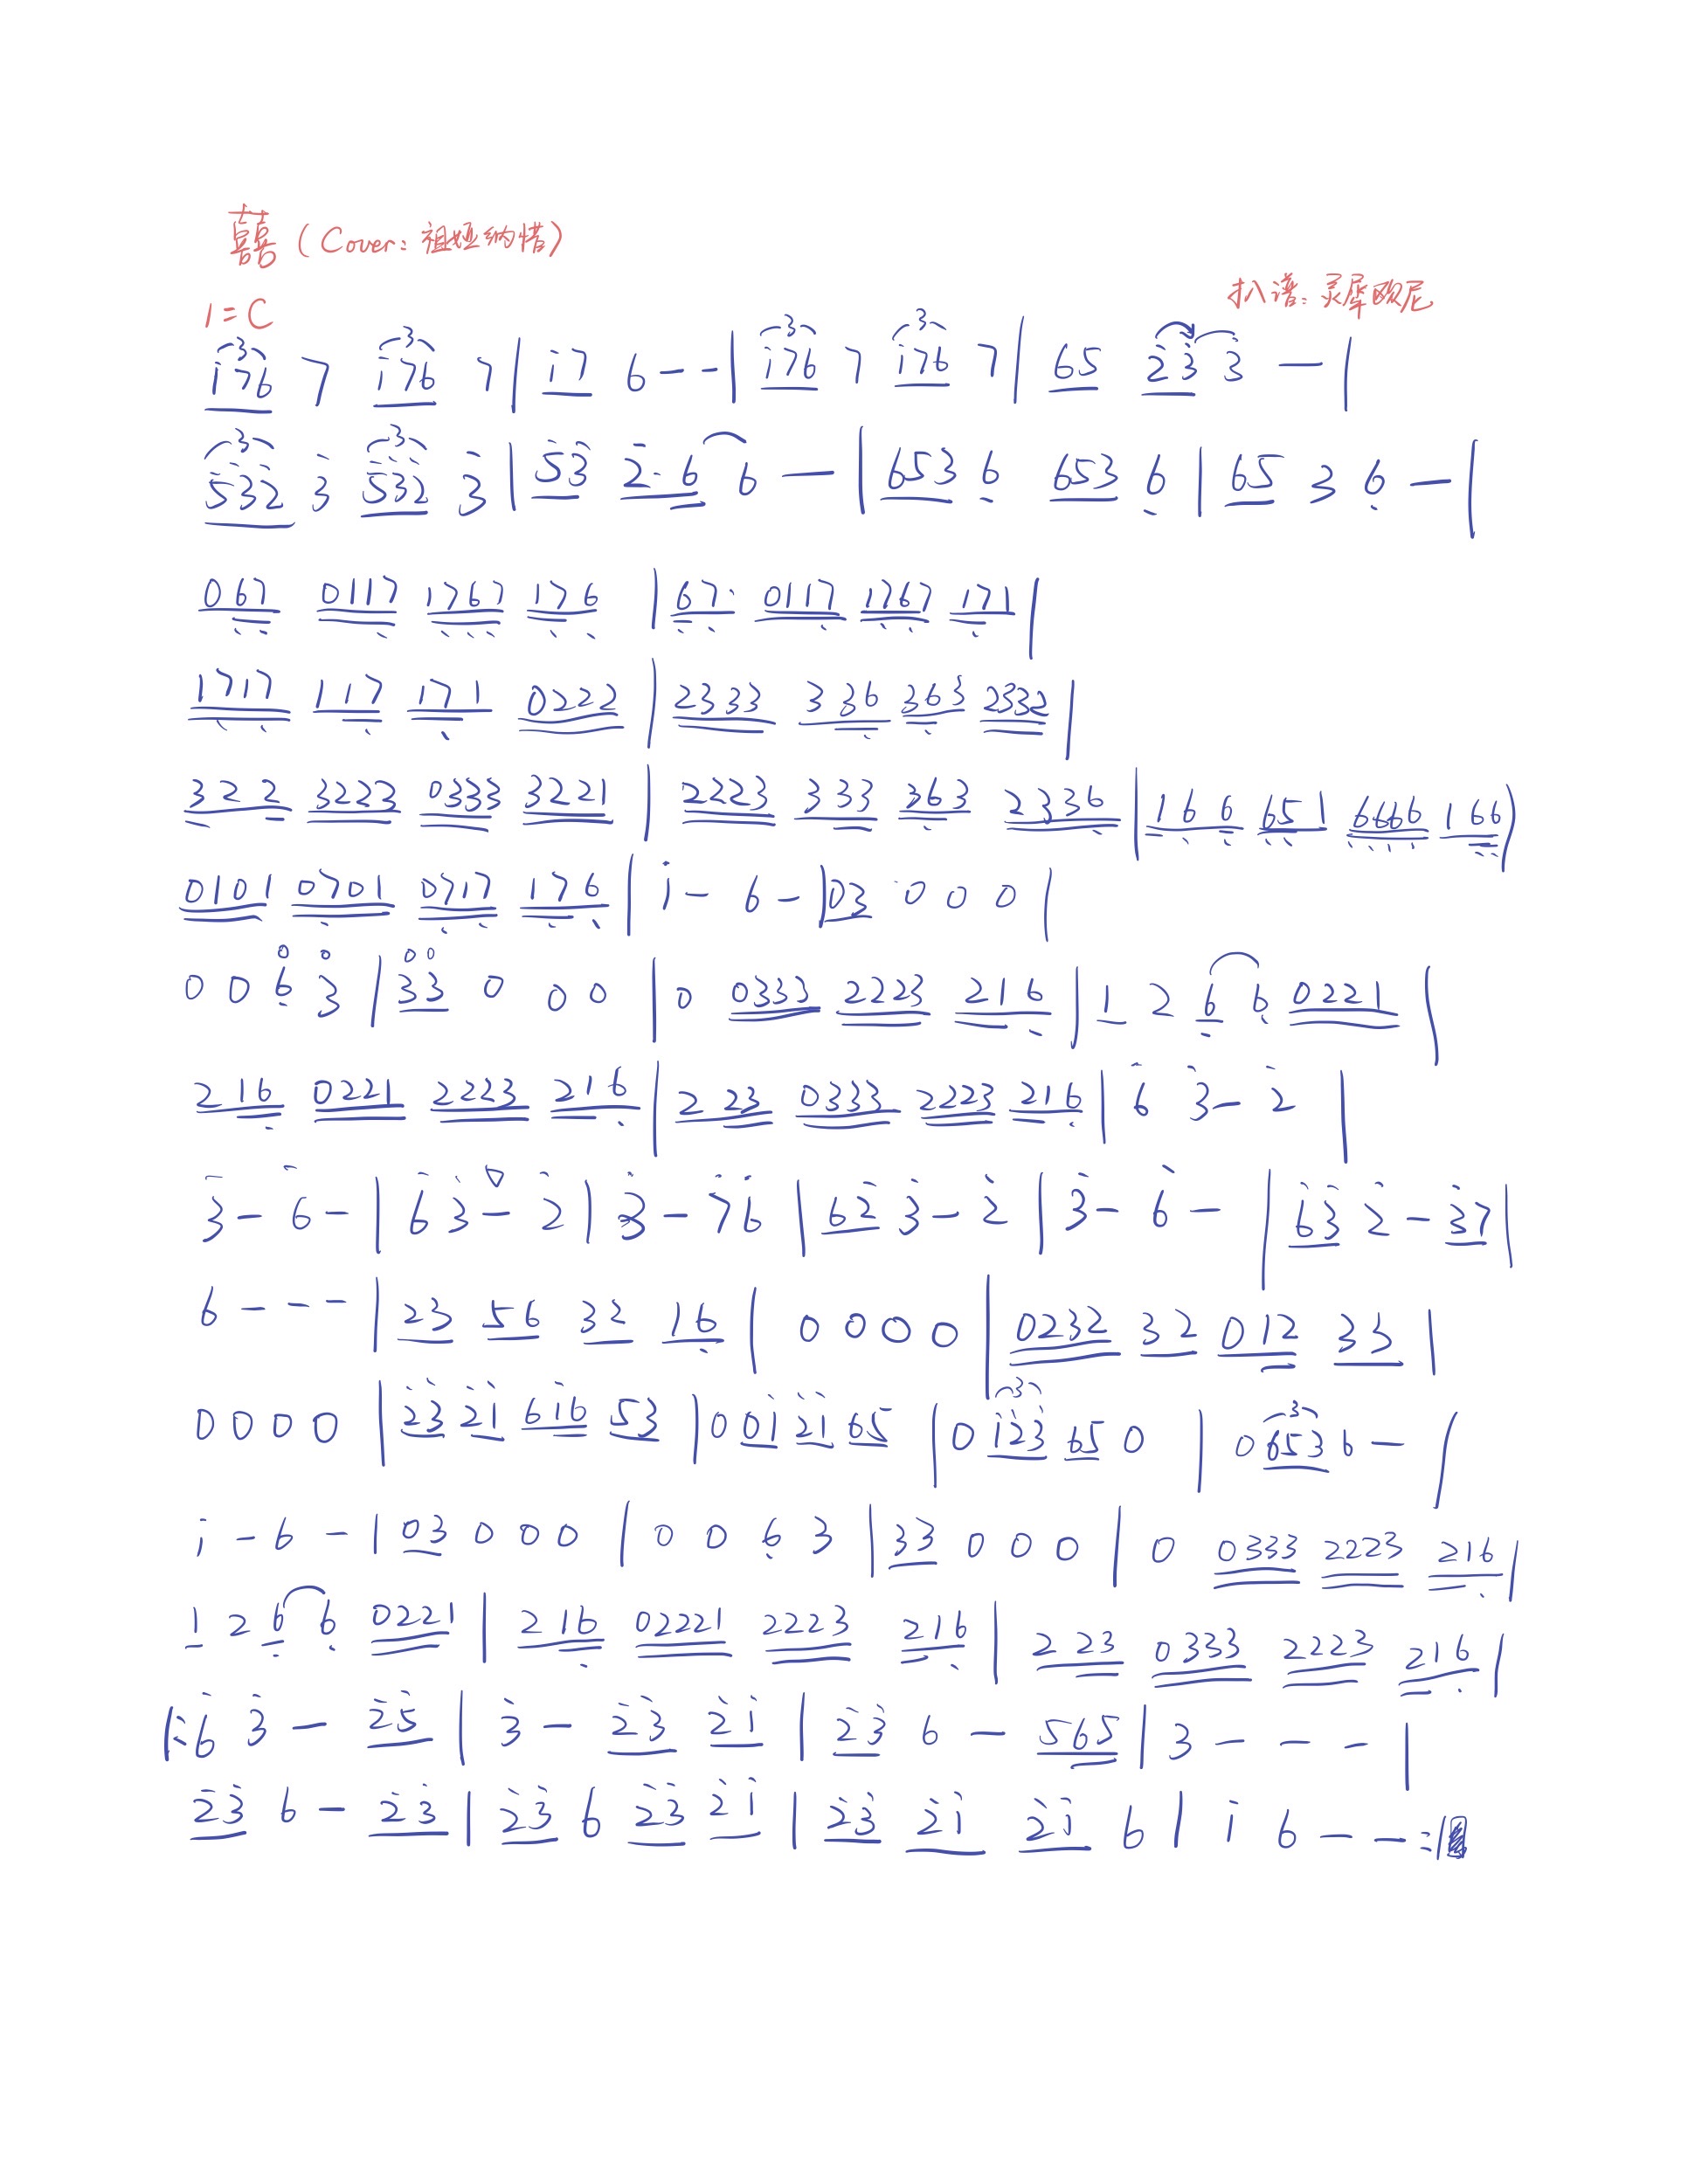 囍(Cover:祖娅纳惜)
扒谱:灵犀欧尼
1=C
i76 7 i76 7 | i7 6 - - | i76 7 i76 7 | 65 23 3 - |
532 3 532 3 | 53 2·6 6 - | 653 6 653 6 | 65 3 6 - |
067 0117 1767 176 | 67· 0117 1767 171 |
1717 117 171 0222 | 2333 336 363 2332 |
322 3223 0333 3221 | 2223 333 363 2336 | 166 651 6666 166 )
0101 0701 0717 176 | i - 6 - | 03 0 0 0 |
0 0 6 3 | 33 0 0 0 | 0 0333 2223 216 | 1 2 6 6 0221 |
216 0221 2223 216 | 2 23 0333 2223 216 | 6 3 - 2 |
3 - 6 - | 6 3 - 2 | 3 - 7 6 | 62 3 - 2 | 3 - 6 - | 63 2 - 37 |
6 - - - | 23 56 32 16 | 0 0 0 0 | 0232 32 012 33 |
0 0 0 0 | 23 21 616 53 | 0 01 21 65 | 0 123 65 0 | 0 653 6 - |
i - 6 - | 03 0 0 0 | 0 0 6 3 | 33 0 0 0 | 0 0333 2223 216 |
1 2 6 6 0221 | 216 02221 2223 216 | 2 23 0333 2223 216 |
|: 6 3 - 25 | 3 - 23 2i | 23 6 - 565 | 3 - - - |
23 6 - 23 | 23 6 23 2i | 23 2i 2i 6 | i 6 - - :|